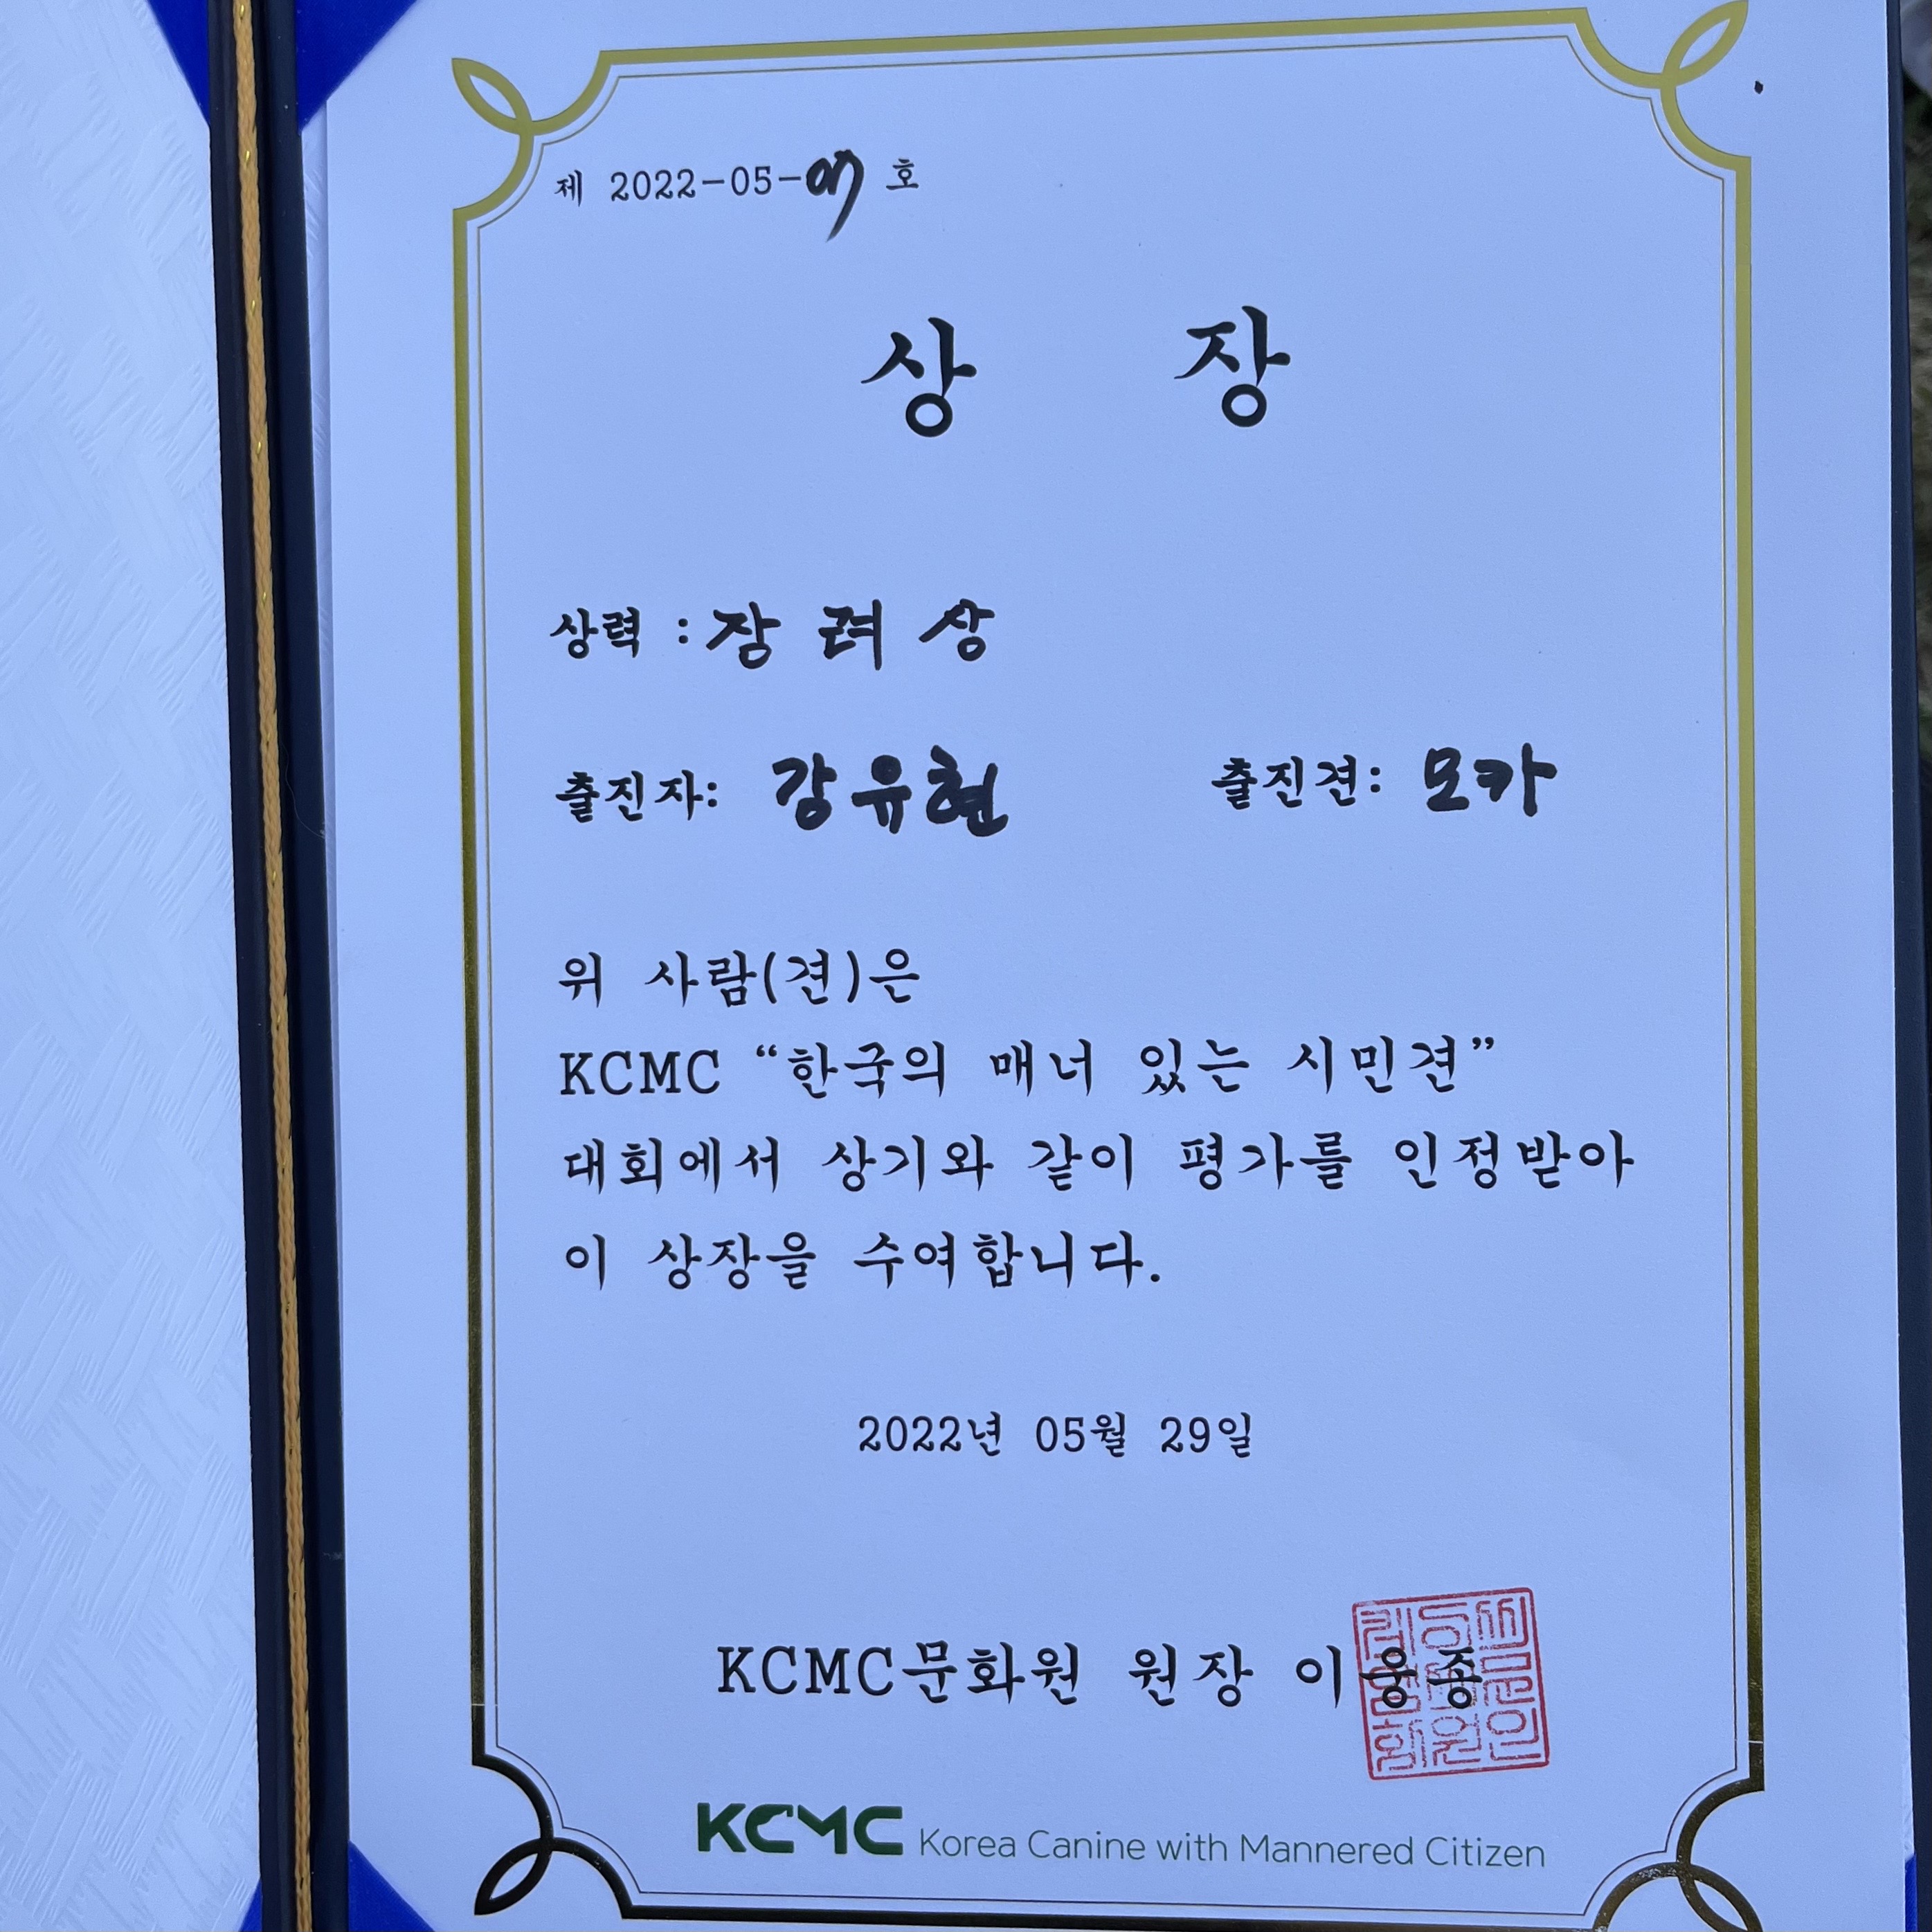 제 2022-05-07 호
상 장
상력 : 장 려 상
출진자: 강유현 출진견: 모카
위 사람(견)은
KCMC “한국의 매너 있는 시민견”
대회에서 상기와 같이 평가를 인정받아
이 상장을 수여합니다.
2022년 05월 29일
KCMC문화원 원장 이웅종
KCMC Korea Canine with Mannered Citizen